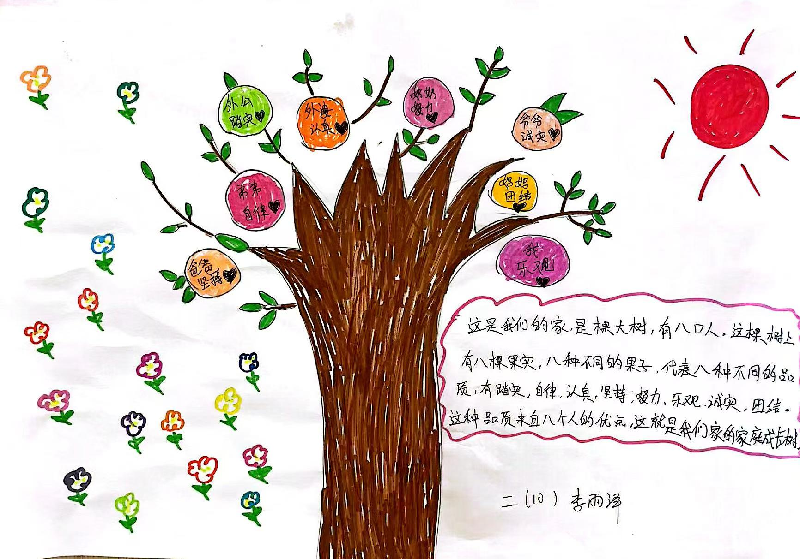 外公
踏实
外婆
认真
奶奶
努力
爷爷
诚实
弟弟
自律
妈妈
团结
爸爸
坚持
我
乐观
这是我们的家,是棵大树,有八口人。这棵树上
有八棵果实,八种不同的果子,代表八种不同的品
质,有踏实,自律,认真,坚持,努力,乐观,诚实,团结。
这种品质来自八个人的优点,这就是我们家的家庭成长树
二(10) 李雨